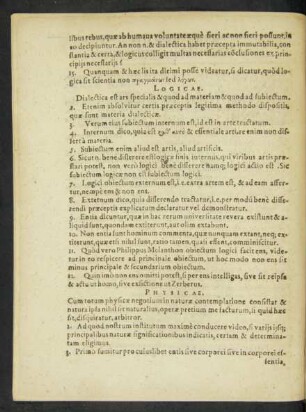 tibus rebus, quæ ab humana voluntate æquè fieri ac non fieri possunt,
eo decipiuntur. An non n. & dialectica habet præcepta immutabilia, con
stantia & certa, & logicus colligit multas necessarias cõclusiones ex prin-
cipijs necessarijs?
15. Quanquam & hæc lis ita dirimi posse videatur, si dicatur, quòd lo-
gica sit scientia non
LOGICAE.
Dialectica est ars specialis & quoad ad materiam & quoad ad subiectum.
2. Etenim absolvitur certis præceptis legitima methodo dispositis,
quæ sunt materia dialecticæ.
3. Verum etiam subiectum internum est, id est in arte tractatum.
4. Internum dico, quia est & essentiale artis enim non dis-
fert à materia.
5. Subiectum enim aliud est artis, aliud artificis.
6. Sicut n. bene disserere est logicæ finis internus, qui viribus artis præ-
stari potest, non verò logici: bene disserere namq; logici actio est. Sic
subiectum logicæ non est subiectum logici.
7. Logici obiectum externum est, i. e. extra artem est, & ad eam affer-
tur, nempe ens & non ens.
8. Externum dico, quia disserendo tractatur, i. e. per modũ benè disse-
rendi præceptis explicatum declaratur vel demonstratur.
9. Entia dicuntur, quæ in hac rerum universitate revera existunt & a-
liquid sunt, quondam extiterunt, vel olim extabunt.
10. Non entia sunt hominum commenta, quæ nunquam extant, neq; ex-
titerunt, quæ etsi nihil sunt, ratio tamen, quasi essent, aliquid fingit.
11. Quòd verò Philippus Melanthon obiectum logici facit ens, vide-
tur in eo respicere ad principale obiectum, ut hoc modo non ens sit
minus principale & secundarium obiectum.
12. Quin imò non ens omniò potest, si per ens intelligas, sive sit reipsa
& actu ut homo, sive ex fictione ut Cerberus.
PHYSICAE.
Cum totum physicæ negotium in naturæ contemplatione consistat &
natura ipsa nihil sit naturalius, operæ pretium me facturum, si quid hæc
sit, disquiratur, arbitror.
2. Ad quod nostrum institutum maximè conducere viden, si varijs ipsi;
principalibus naturæ significationibus indicatis, certam & determina-
tam eligimus.
3. Primò sumitur pro cuiuslibet entis sive corporei sive incorporei es-
sentia,